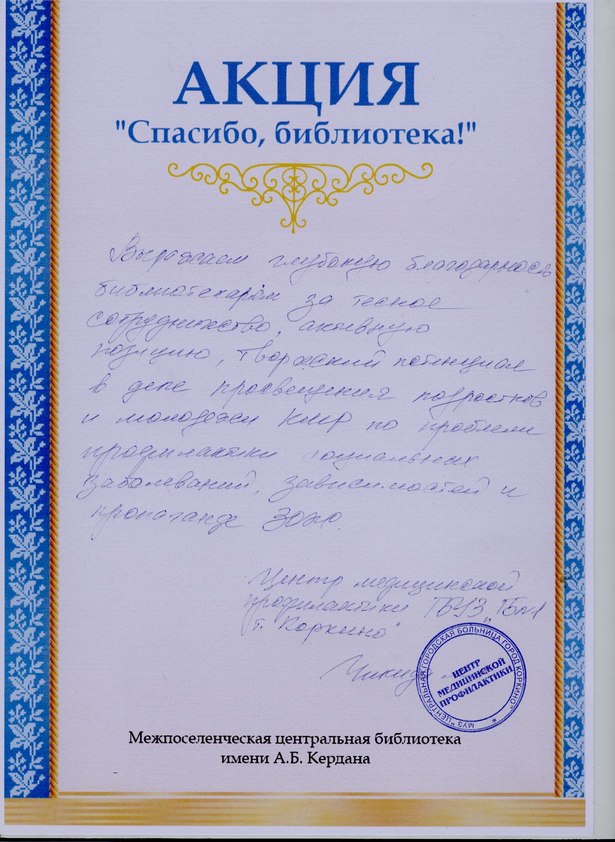 АКЦИЯ
"Спасибо, библиотека!"
Выражаем глубокую благодарность
библиотекарям за тесное
сотрудничество, активную
позицию, творческий потенциал
в деле просвещения подростков
и молодежи КМР по проблеме
профилактики социальных
заболеваний, зависимостей и
пропаганде ЗОЖ.
Центр медицинской
профилактики ГБУЗ "ГБ№1
г. Коркино"
ЦЕНТР
МЕДИЦИНСКОЙ
ПРОФИЛАКТИКИ
МУЗ "ЦЕНТРАЛЬНАЯ ГОРОДСКАЯ БОЛЬНИЦА ГОРОД КОРКИНО"
Межпоселенческая центральная библиотека
имени А.Б. Кердана